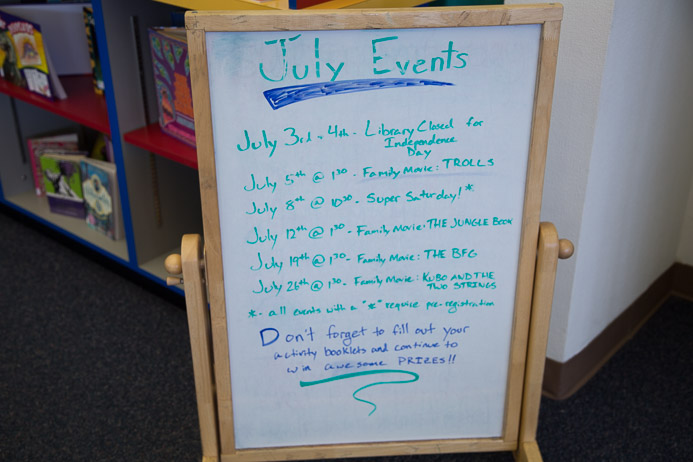 July Events
July 3rd & 4th - Library Closed for
Independence
Day
July 5th @ 1:30 - Family Movie: TROLLS
July 8th @ 10:30 - Super Saturday! *
July 12th @ 1:30 - Family Movie: THE JUNGLE BOOK
July 19th @ 1:30 - Family Movie: THE BFG
July 26th @ 1:30 - Family Movie: KUBO AND THE
TWO STRINGS
* - all events with a "*" require pre-registration
Don't forget to fill out your
activity booklets and continue to
win awesome PRIZES!!